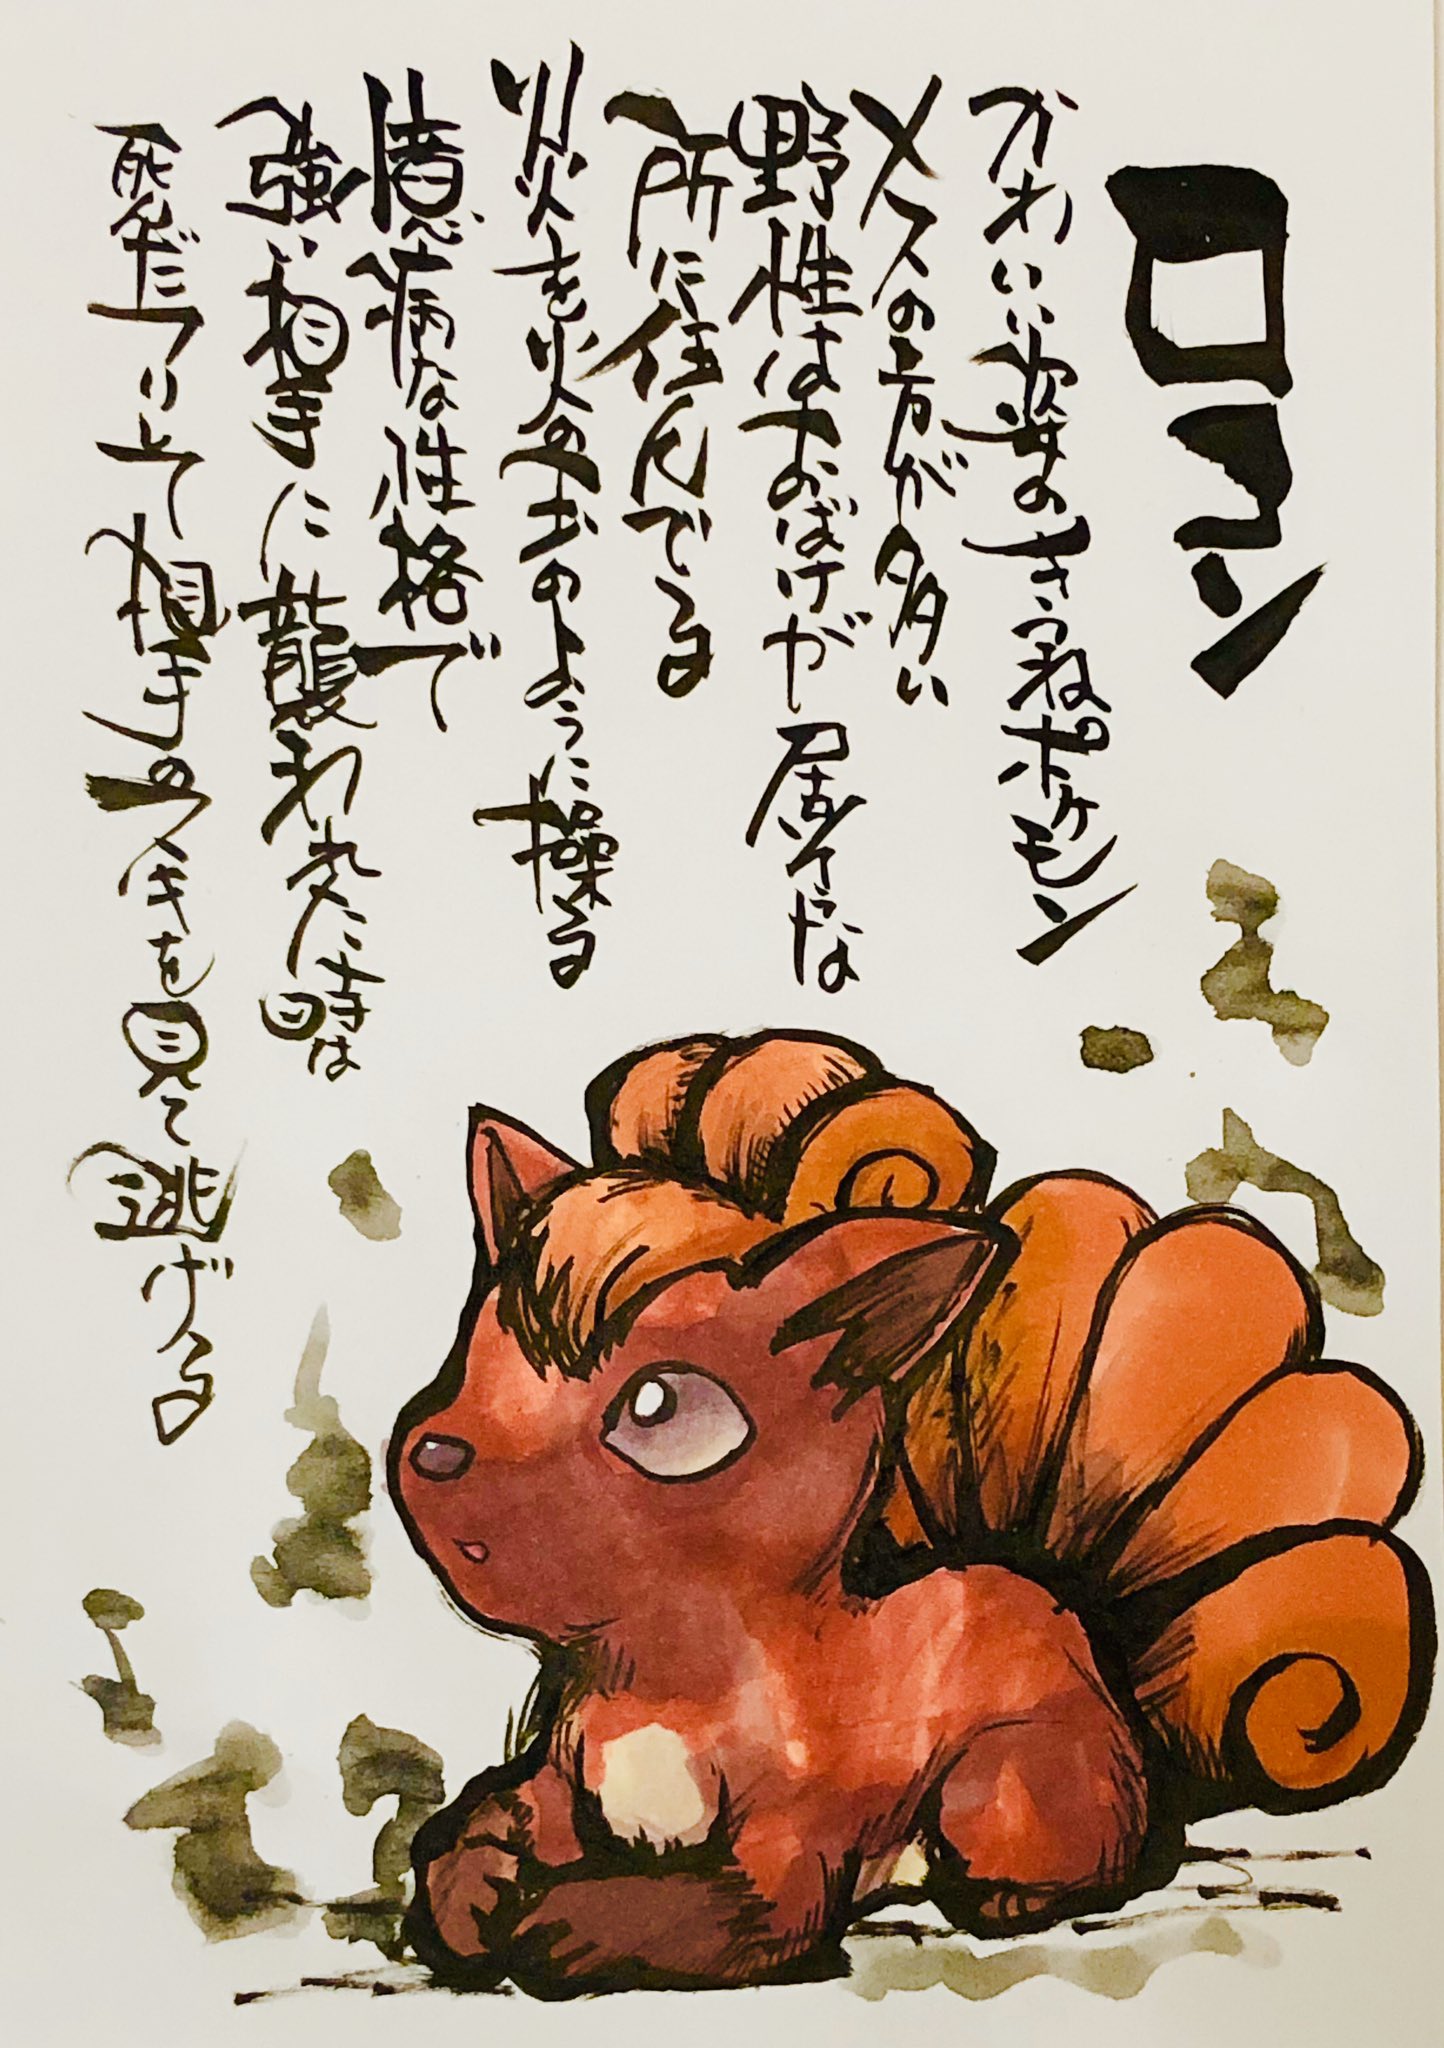 ロコン
かわいい姿のきつねポケモン
メスの方が多い
野性はおばけが居そうな
所に住んでる
炎を火の玉のように操る
臆病な性格で
強い相手に襲われた時は
死んだフリして相手のスキを見て逃げる